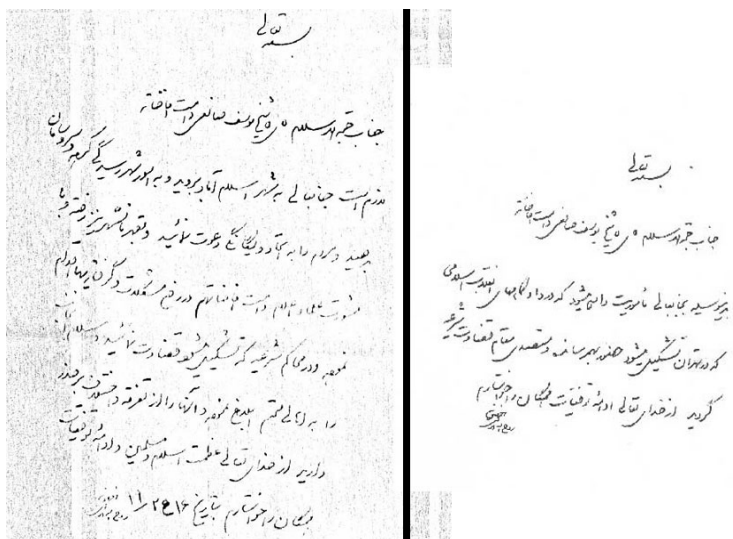 بسمه تعالی
جناب حجةالاسلام آقای شیخ یوسف صانعی دامت افاضاته
بدینوسیله بجنابعالی مأموریت داده میشود که در دادگاههای انقلاب اسلامی
که در تهران تشکیل میشود حضور بهمرسانده و متصدی مقام قضاوت شرعیه
گردید از خدای تعالی ادامه توفیقات همگان را خواستارم
بسمه تعالی
جناب حجةالاسلام آقای شیخ یوسف صانعی دامت افاضاته
لازم است جنابعالی به شهر اسلام آباد بروید و به امور شهر رسیدگی
و مردم را به اتحاد و یگانگی دعوت نمائید و بعد رفته و با
مشورت علماء اعلام دامت افاضاتهم در رفع مشکلات و گرفتاریها اقدام
نموده و در محاکم شرعیه که تشکیل میشود قضاوت نمائید و سلام
را به اهالی محترم ابلاغ نموده و آنها را از تفرقه و اختلاف بر حذر
دارید از خدای تعالی عظمت اسلام و مسلمین و ادامه توفیقات
همگان را خواستارم بتاریخ